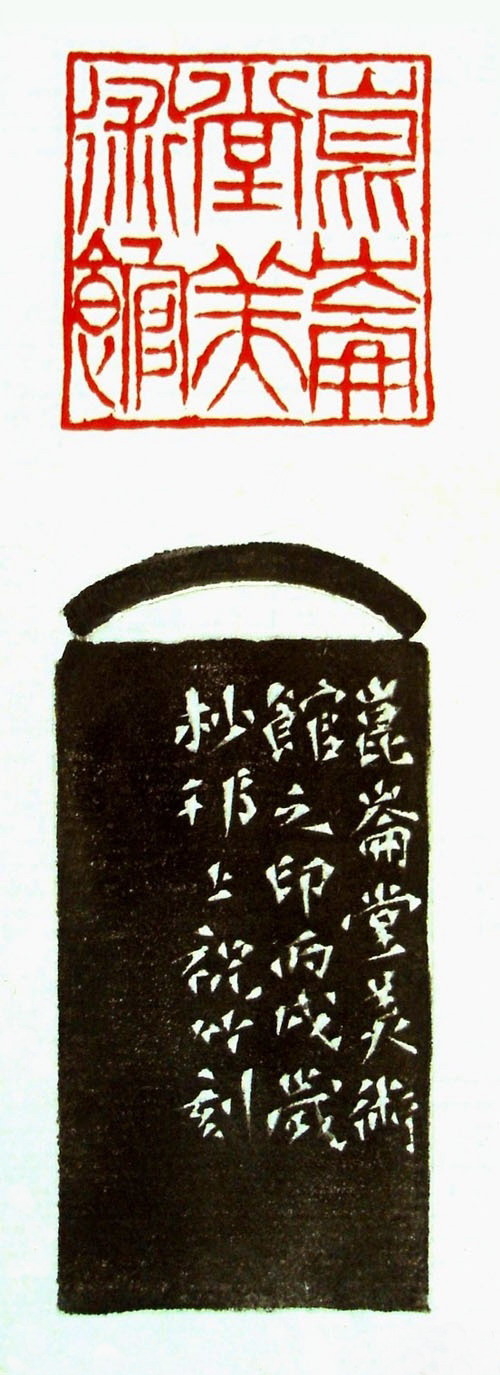 崑崙
堂美
術館
崑崙堂美術
館之印丙戌歲
杪邗上祝竹刻